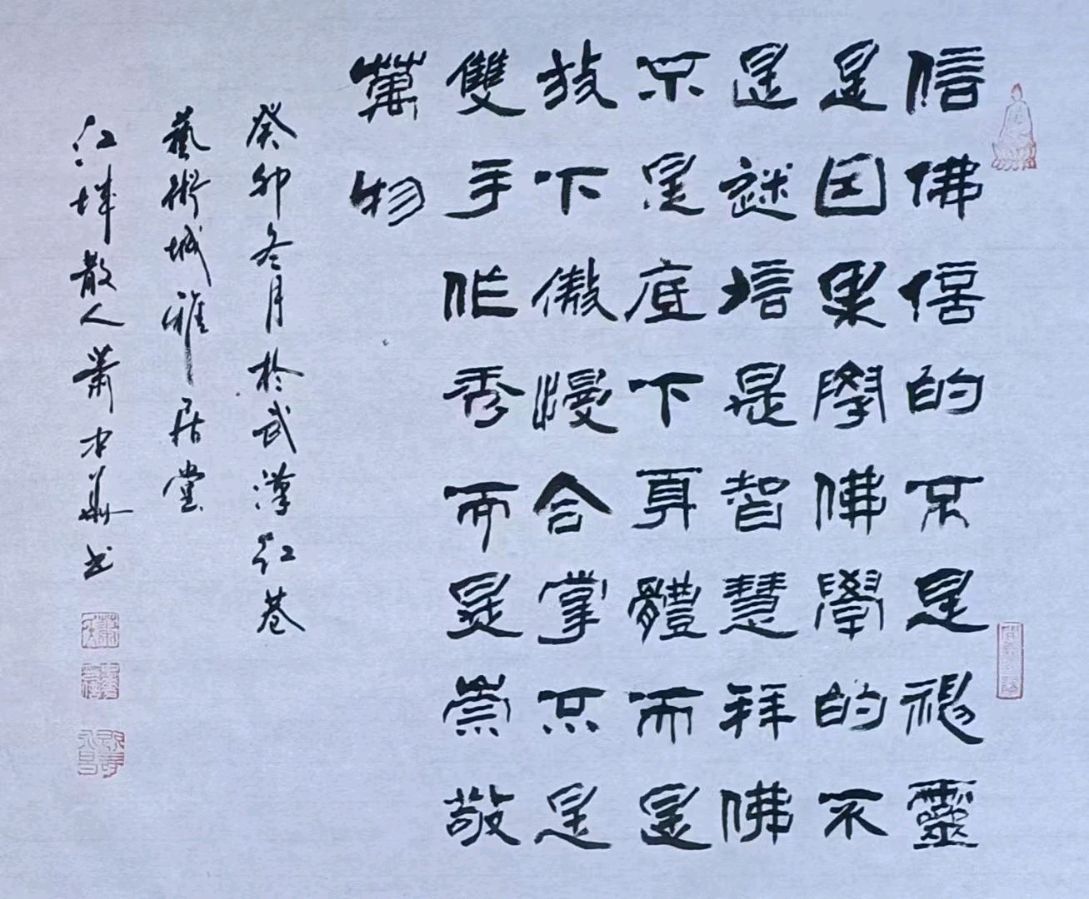 信佛信的不是神靈
是因果學佛學的不
是迷信是智慧拜佛
不是底下身體而是
放下傲慢合掌不是
雙手作秀而是崇敬
萬物
癸卯冬月於武漢紅巷
藝術城雅居堂
江城散人蕭才華書